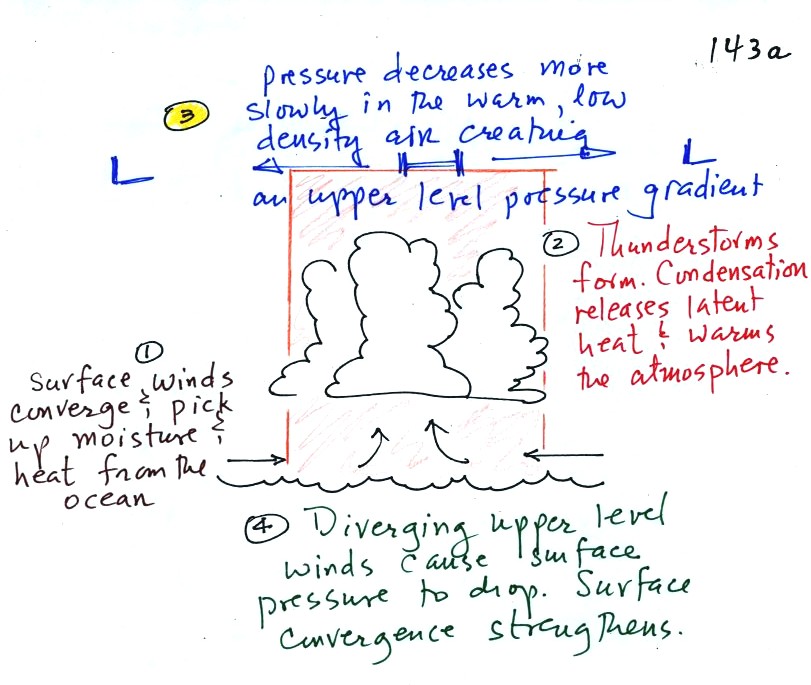 143a
3
pressure decreases more
slowly in the warm, low
density air creating
L
L
an upper level pressure gradient
2 Thunderstorms
form. Condensation
releases latent
heat & warms
the atmosphere.
1
Surface winds
converge & pick
up moisture &
heat from the
ocean
4 Diverging upper level
winds cause surface
pressure to drop. Surface
convergence strengthens.